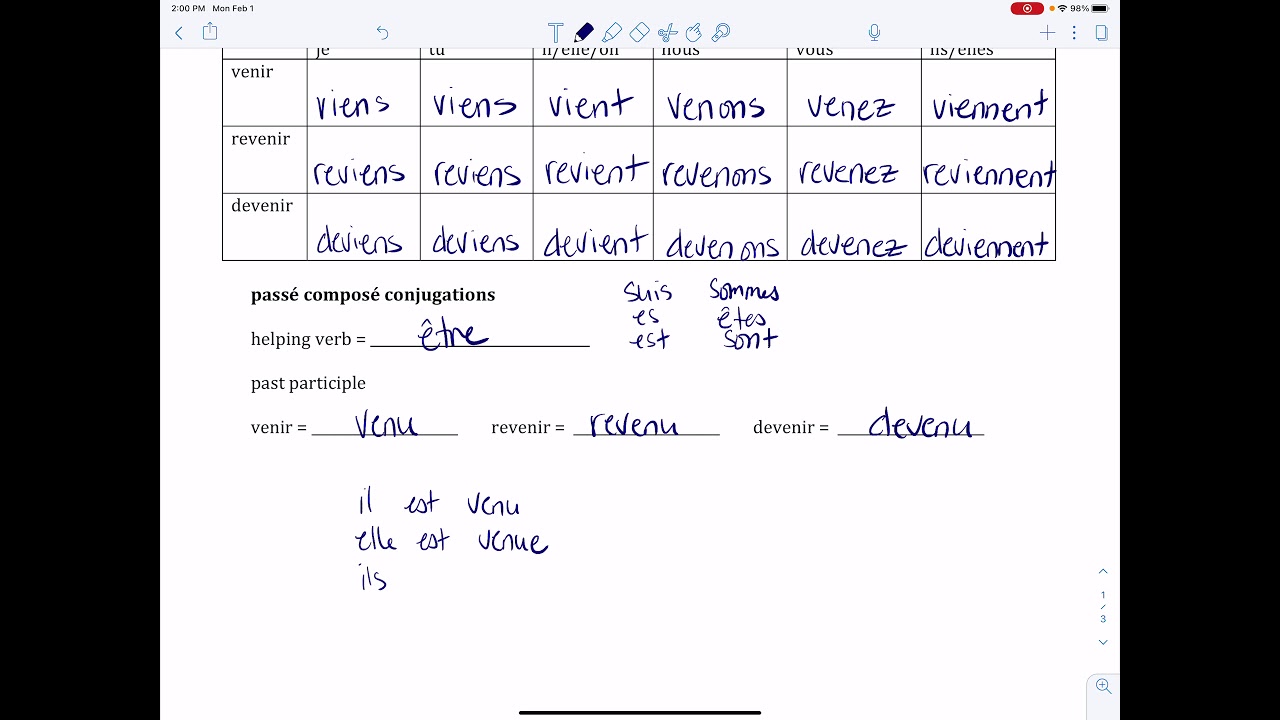 2:00 PM Mon Feb 1 98%
T
je tu il/elle/on nous vous ils/elles
venir
viens viens vient venons venez viennent
revenir
reviens reviens revient revenons revenez reviennent
devenir
deviens deviens devient devenons devenez deviennent
passé composé conjugations suis sommes
es êtes
helping verb = être est sont
past participle
venir = venu revenir = revenu devenir = devenu
il est venu
elle est venue
ils
1
/
3